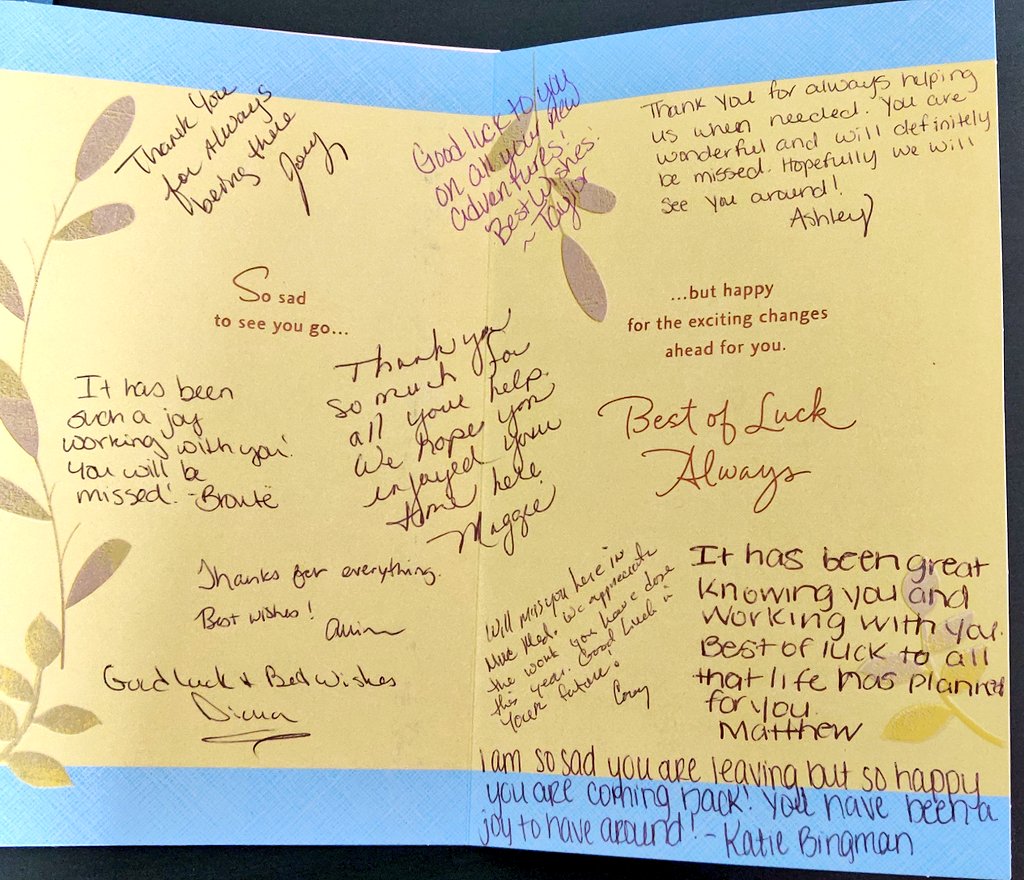 Thank You
for Always
being there
Good luck to you
on all your new
adventures!
Best Wishes!
~ Taylor
Thank you for always helping
us when needed. You are
wonderful and will definitely
be missed. Hopefully we will
see you around!
Ashley
So sad
to see you go...
...but happy
for the exciting changes
ahead for you.
It has been
such a joy
working with you!
You will be
missed! -Brontë
Thank you
so much for
all your help.
We hope you
enjoyed your
time here
Maggie
Best of Luck
Always
Thanks for everything.
Best wishes!
Good luck + Best Wishes
Diana
Will miss you here in
Nuc Med. We appreciate
the work you have done
this year. Good Luck in
your future.
It has been great
knowing you and
working with you.
Best of luck to all
that life has planned
for you.
Matthew
I am so sad you are leaving but so happy
you are coming back! You have been a
joy to have around! - Katie Bingman